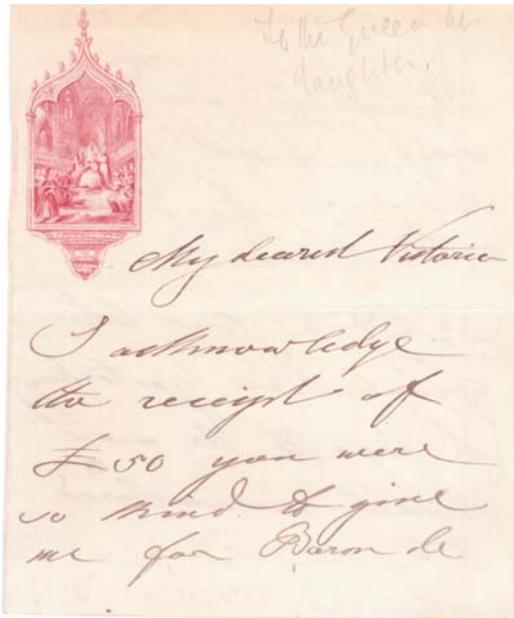 To the Queen her
daughter.
My dearest Victoria
I acknowledge
the receipt of
£50 you were
so kind to give
me for Baron de